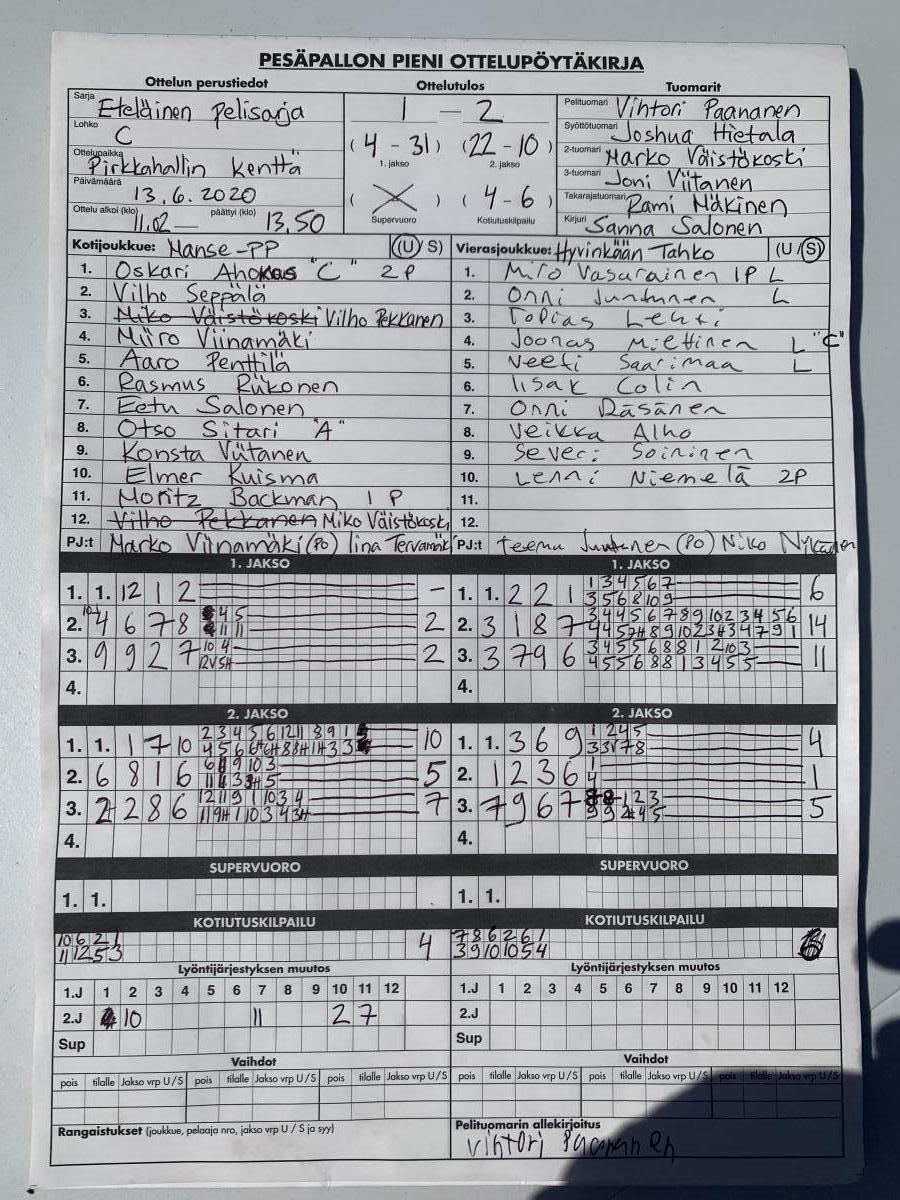 PESÄPALLON PIENI OTTELUPÖYTÄKIRJA
Ottelun perustiedot
Sarja Eteläinen pelisarja
Lohko C
Ottelupaikka Pirkkahallin kenttä
Päivämäärä 13.6.2020
Ottelu alkoi (klo) 11.02 — päättyi (klo) 13.50
Ottelutulos
1 — 2
(4 - 31) (22 - 10)
1. jakso 2. jakso
( ) (4 - 6)
Supervuoro Kotiutuskilpailu
Tuomarit
Pelituomari Vihtori Paananen
Syöttötuomari Joshua Hietala
2-tuomari Marko Väistökoski
3-tuomari Joni Viitanen
Takarajatuomari Rami Mäkinen
Kirjuri Sanna Salonen
Kotijoukkue: Manse-PP (U/S)
1. Oskari Ahokas "C" 2P
2. Vilho Seppälä
3. Miko Väistökoski Vilho Pekkanen
4. Miiro Viinamäki
5. Aaro Penttilä
6. Rasmus Riikonen
7. Eetu Salonen
8. Otso Sitari "A"
9. Konsta Viitanen
10. Elmer Kuisma
11. Moritz Backman 1P
12. Vilho Pekkanen Miko Väistökoski
PJ:t Marko Viinamäki (PO) Iina Tervamäki
Vierasjoukkue: Hyvinkään Tahko (U/S)
1. Miro Vasarainen 1P L
2. Onni Juntunen L
3. Topias Lehti
4. Joonas Miettinen L "C"
5. Veeti Saarimaa L
6. Iisak Colin
7. Onni Räsänen
8. Veikka Alho
9. Severi Soininen
10. Lenni Niemelä 2P
11.
12.
PJ:t Teemu Juntunen (PO) Niko
1. JAKSO
1. 1. 12 1 2 –
2. 4 6 7 8 2
3. 9 9 2 7 2
4.
1. JAKSO
1. 1. 2 2 1 1 3 4 5 6 7 6
3 5 6 8 10 9
2. 3 1 8 7 14
3. 3 7 9 6 11
4.
2. JAKSO
1. 1. 1 7 10 10
2. 6 8 1 6 5
3. 2 2 8 6 7
4.
2. JAKSO
1. 1. 3 6 9 4
2. 1 2 3 6 1
4 1
3. 7 9 6 7 5
4.
SUPERVUORO
1. 1.
SUPERVUORO
1. 1.
KOTIUTUSKILPAILU
10 6 2 1 4
11 12 5 3
KOTIUTUSKILPAILU
7 8 6 2 6 1
3 9 10 10 5 4
Lyöntijärjestyksen muutos
1.J 1 2 3 4 5 6 7 8 9 10 11 12
2.J 10 11 2 7
Sup
Lyöntijärjestyksen muutos
1.J 1 2 3 4 5 6 7 8 9 10 11 12
2.J
Sup
Vaihdot
pois tilalle Jakso vrp U/S pois tilalle Jakso vrp U/S pois tilalle Jakso vrp U/S
Vaihdot
pois tilalle Jakso vrp U/S pois tilalle Jakso vrp U/S pois tilalle Jakso vrp U/S
Rangaistukset (joukkue, pelaaja nro, jakso vrp U / S ja syy)
Pelituomarin allekirjoitus
Vihtori Paananen